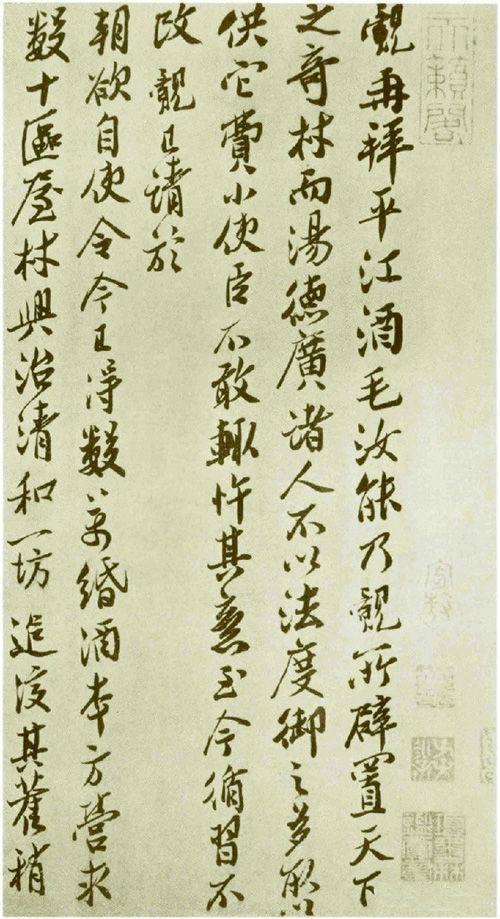 覿再拜平江酒毛汝能乃覿所辟置天下
之奇材而湯德廣諸人不以法度御之多以
供它費小使臣不敢輒忤其意至今循習不
改覿已請於
朝欲自使令今已得數萬緡酒本方營求
數十區屋材興治清和一坊追復其舊稍
天籟閣